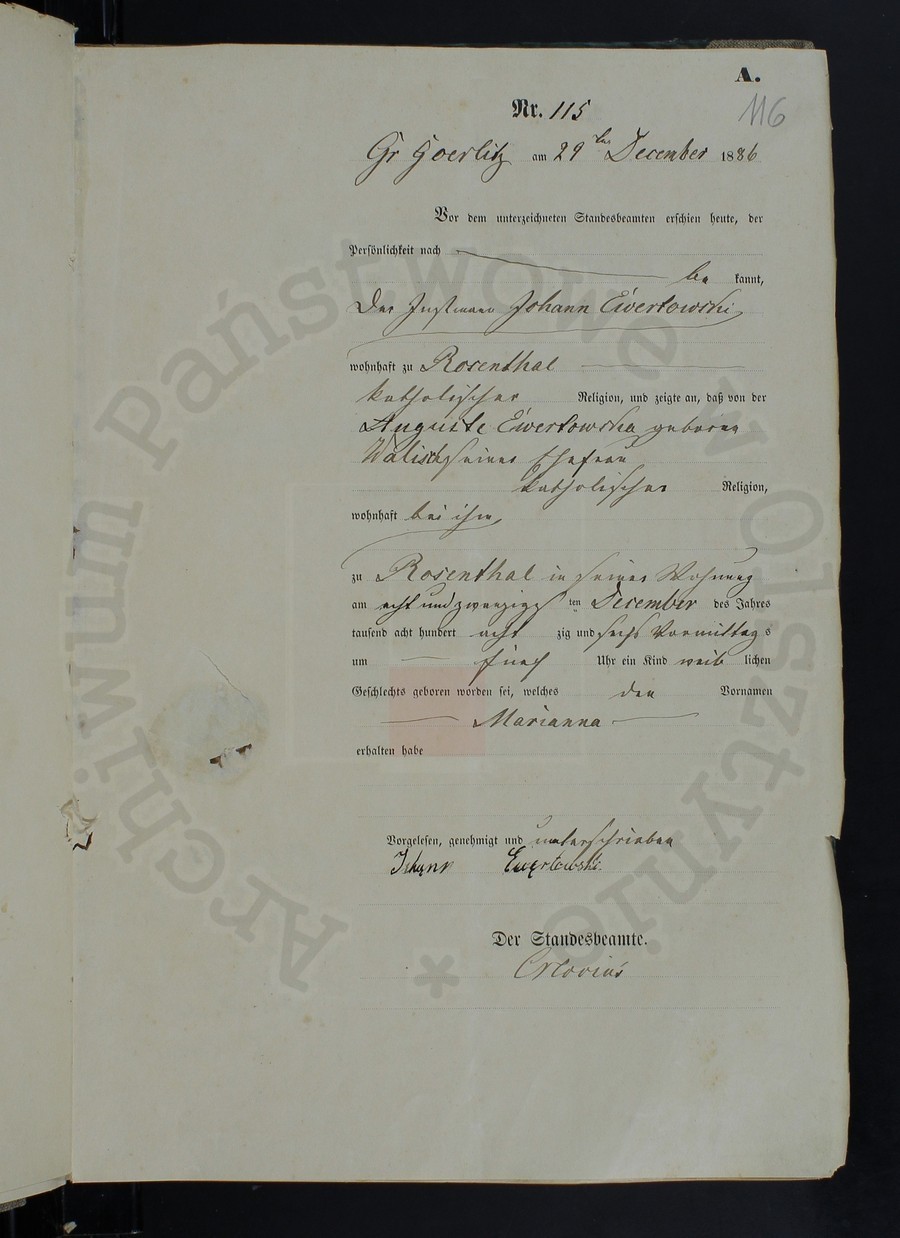 A.
116
Nr. 115
Gr Goerlitz am 29ten December 1886
Vor dem unterzeichneten Standesbeamten erschien heute, der
Persönlichkeit nach
be kannt,
Der Instmann Johann Ewertowski
wohnhaft zu Rosenthal
katholischer Religion, und zeigte an, daß von der
Auguste Ewertowska geborene
seiner Ehefrau
katholischer Religion,
wohnhaft bei ihm
zu Rosenthal in seiner Wohnung
am acht und zwanzigsten December des Jahres
tausend acht hundert acht zig und sechs Vormittags
um fünf Uhr ein Kind weib lichen
Geschlechts geboren worden sei, welches den Vornamen
Marianna
erhalten habe
Vorgelesen, genehmigt und unterschrieben
Johann Ewertowski.
Der Standesbeamte.
Archiwum Państwowe w Olsztynie *